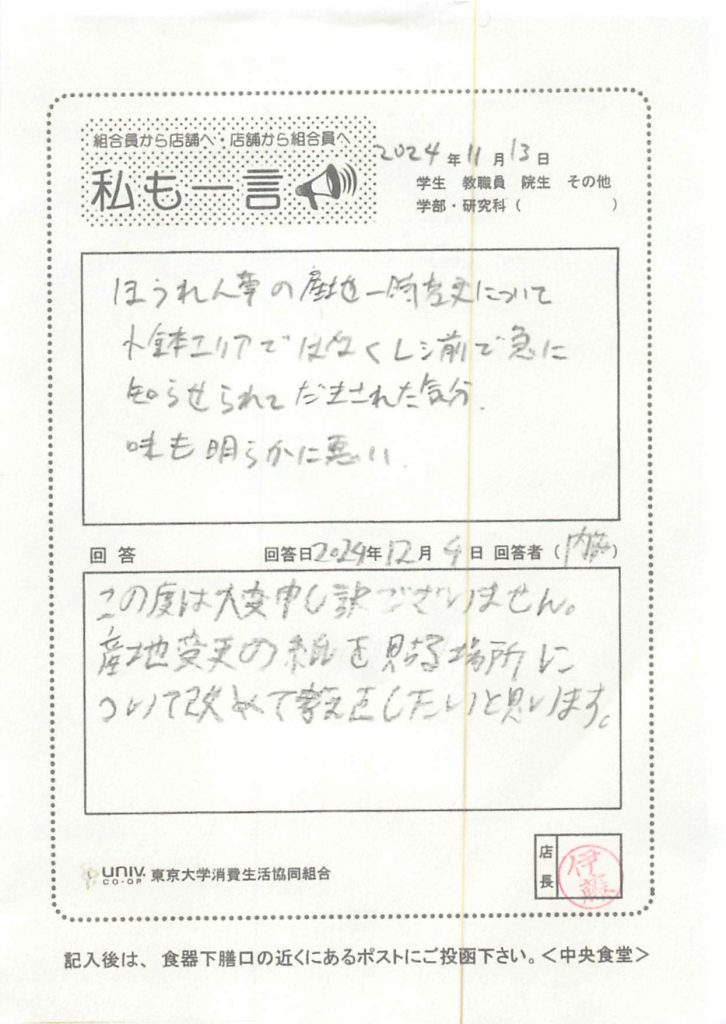 組合員から店舗へ・店舗から組合員へ
私も一言
2024年11月13日
学生 教職員 院生 その他
学部・研究科（ ）
ほうれん草の産地一時変更について
小鉢エリアではなくレジ前で急に
知らせられてだまされた気分.
味も明らかに悪い.
回答 回答日2024年12月4日 回答者（内藤）
この度は大変申し訳ございません。
産地変更の紙を見る場所に
ついて改めて考え直したいと思います。
UNIV. CO-OP 東京大学消費生活協同組合
店長
伊藤
記入後は、食器下膳口の近くにあるポストにご投函下さい。＜中央食堂＞